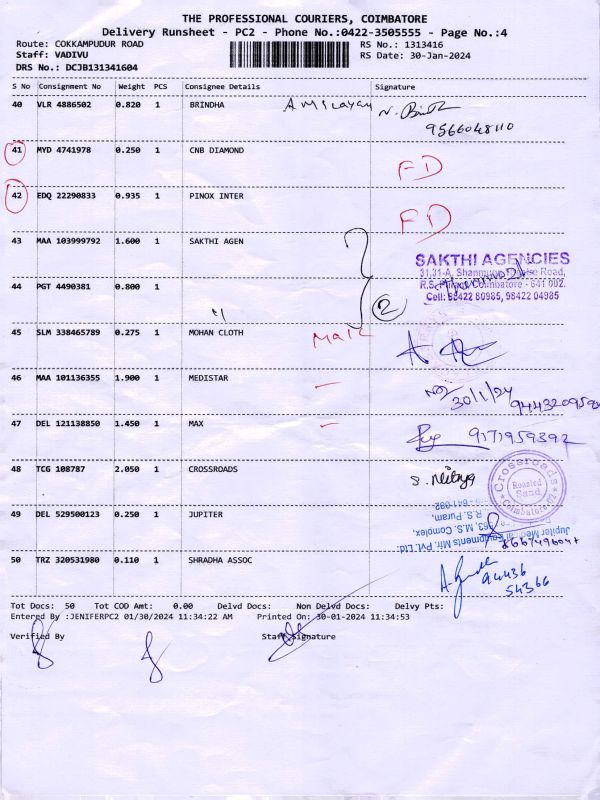 THE PROFESSIONAL COURIERS, COIMBATORE
Delivery Runsheet - PC2 - Phone No.:0422-3505555 - Page No.:4
Route: COKKAMPUDUR ROAD RS No.: 1313416
Staff: VADIVU RS Date: 30-Jan-2024
DRS No.: DCJB131341604
S No Consignment No Weight PCS Consignee Details Signature
40 VLR 4886502 0.820 1 BRINDHA
9566048110
41 MYD 4741978 0.250 1 CNB DIAMOND FD
42 EDQ 22290833 0.935 1 PINOX INTER FD
43 MAA 103999792 1.600 1 SAKTHI AGEN
SAKTHI AGENCIES
31,31-A, Road,
R.S. Coimbatore - 641 002.
Cell: 98422 80985, 98422 04985
44 PGT 4490381 0.800 1 〃 2
45 SLM 338465789 0.275 1 MOHAN CLOTH
46 MAA 101136355 1.900 1 MEDISTAR - 30/1/24
47 DEL 121138850 1.450 1 MAX - 9171959392
48 TCG 108787 2.050 1 CROSSROADS S. Nithya
Crossroads
Roasted
Sand
Coimbatore-02
49 DEL 529500123 0.250 1 JUPITER
Jupiter Medical Equipments Mfr. Pvt. Ltd.
363, M.S. Complex,
R.S. Puram,
50 TRZ 320531980 0.110 1 SHRADHA ASSOC
94436
54366
Tot Docs: 50 Tot COD Amt: 0.00 Delvd Docs: Non Delvd Docs: Delvy Pts:
Entered By :JENIFERPC2 01/30/2024 11:34:22 AM Printed On: 30-01-2024 11:34:53
Verified By Staff Signature